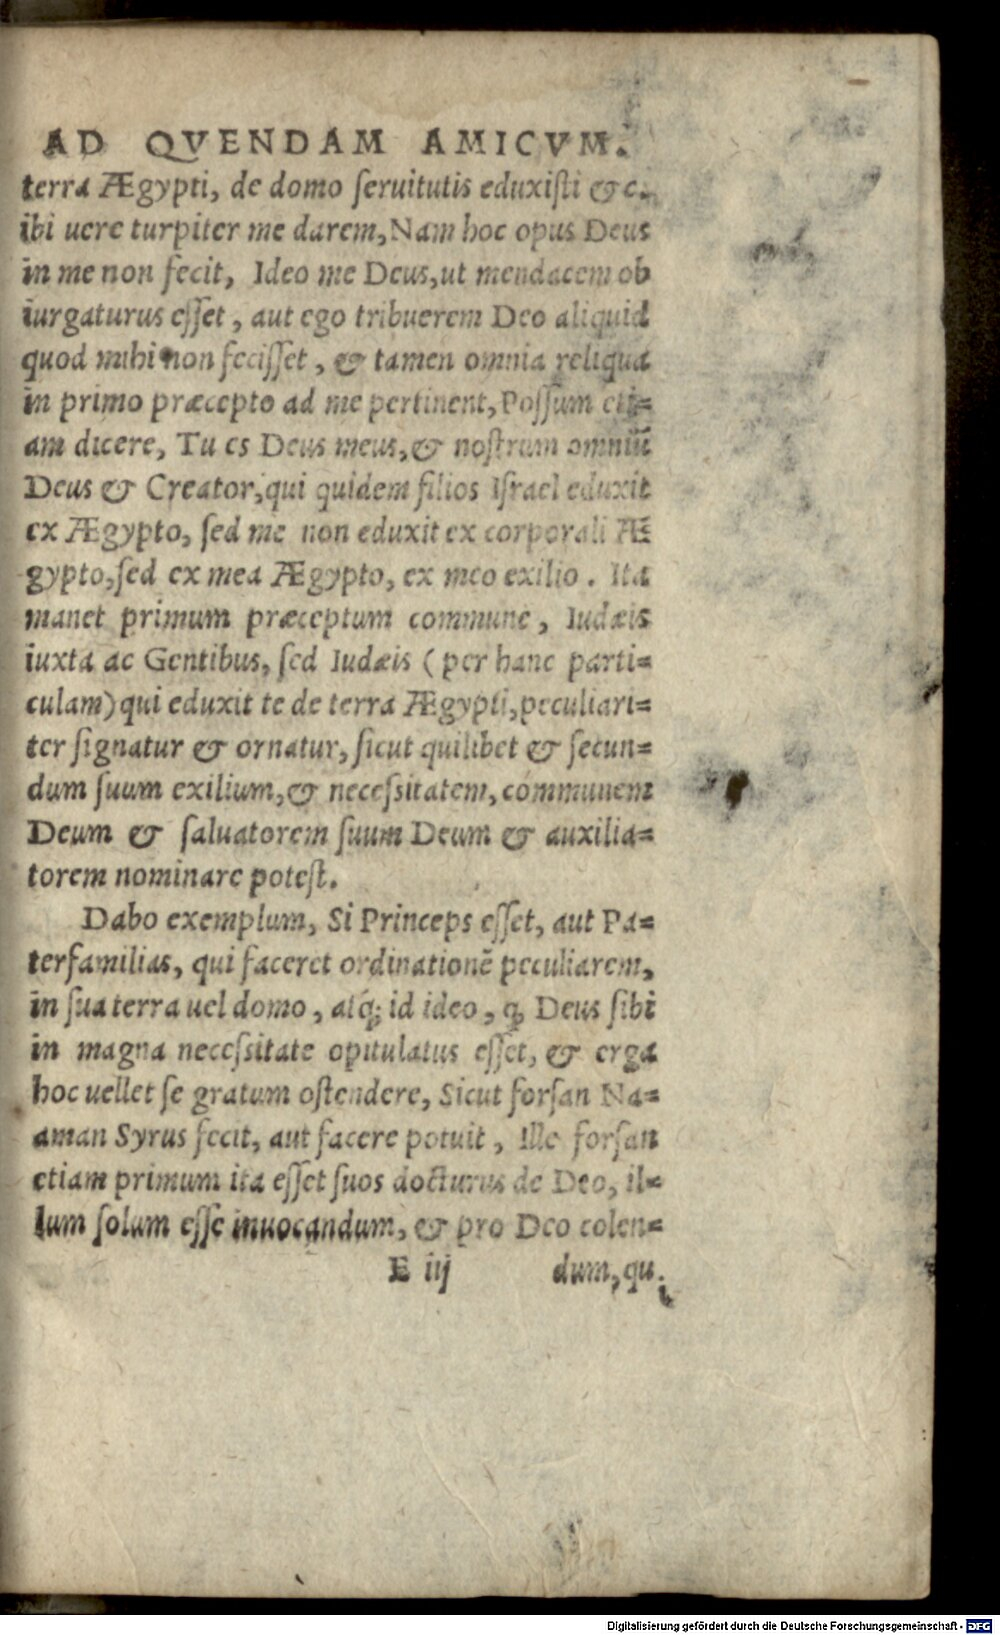 AD QVENDAM AMICVM.
terra Ægypti, de domo ſeruitutis eduxiſti &c.
ibi uere turpiter me darem, Nam hoc opus Deus
in me non fecit, Ideo me Deus, ut mendacem ob
iurgaturus eſſet, aut ego tribuerem Deo aliquid
quod mihi non feciſſet, & tamen omnia reliqua
in primo præcepto ad me pertinent, Poſſum eti=
am dicere, Tu es Deus meus, & noſtrum omniū
Deus & Creator, qui quidem filios Iſrael eduxit
ex Ægypto, ſed me non eduxit ex corporali Æ
gypto, ſed ex mea Ægypto, ex meo exilio. Ita
manet primum præceptum commune, Iudæis
iuxta ac Gentibus, ſed Iudæis (per hanc parti=
culam) qui eduxit te de terra Ægypti, peculiari=
ter ſignatur & ornatur, ſicut quilibet & ſecun=
dum ſuum exilium, & neceſsitatem, communem
Deum & ſaluatorem ſuum Deum & auxilia=
torem nominare poteſt.
Dabo exemplum, Si Princeps eſſet, aut Pa=
terfamilias, qui faceret ordinationē peculiarem,
in ſua terra uel domo, atq́; id ideo, ꝙ Deus ſibi
in magna neceſsitate opitulatus eſſet, & erga
hoc uellet ſe gratum oſtendere, Sicut forſan Na=
aman Syrus fecit, aut facere potuit, Ille forſan
etiam primum ita eſſet ſuos docturus de Deo, il=
lum ſolum eſſe inuocandum, & pro Deo colen=
E iij dum, qu.
Digitalisierung gefördert durch die Deutsche Forschungsgemeinschaft - DFG